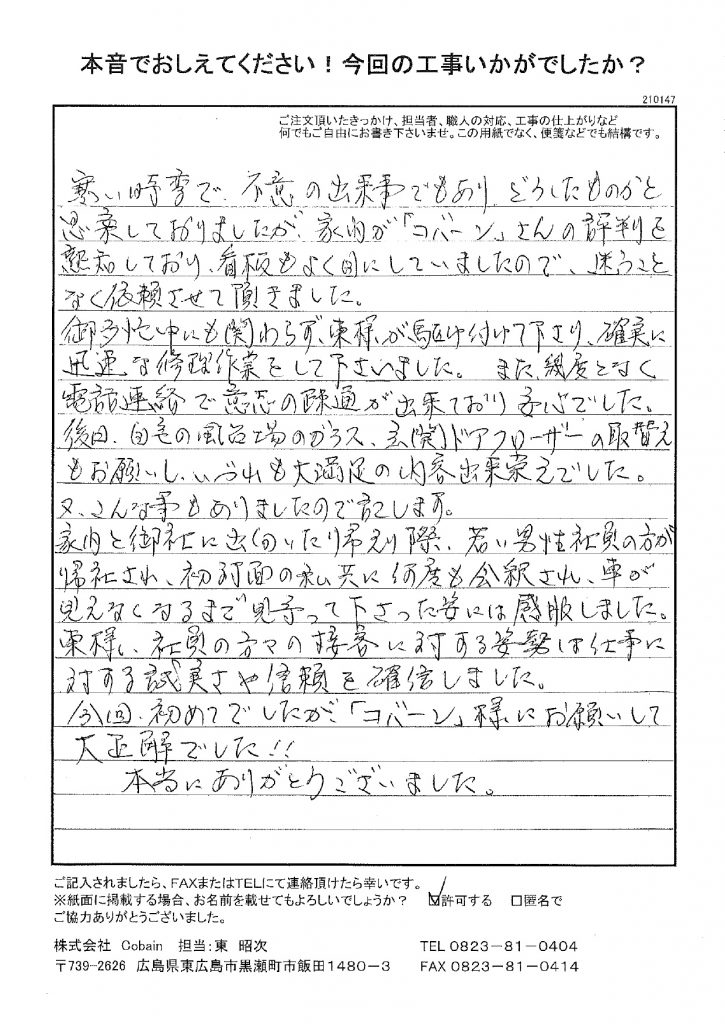 本音でおしえてください！今回の工事いかがでしたか？
210147
ご注文頂いたきっかけ、担当者、職人の対応、工事の仕上がりなど
何でもご自由にお書き下さいませ。この用紙でなく、便箋などでも結構です。
寒い時季で、不意の出来事でもあり どうしたものかと
思案しておりましたが、家内が「コバーン」さんの評判を
熟知しており、看板もよく目にしていましたので、迷うこと
なく依頼させて頂きました。
御多忙中にも関わらず、東様が駆け付けて下さり、確実に
迅速な修理作業をして下さいました。 また、幾度となく
電話連絡で意思の疎通が出来ており安心でした。
後日、自宅の風呂場のガラス、玄関ドアクローザーの取替え
もお願いし、いづれも大満足の内容出来栄えでした。
又、こんな事もありましたので記します。
家内と御社に出向いたり帰えり際、若い男性社員の方が
帰社され、初対面の私共に何度も会釈され、車が
見えなくなるまで見守って下さった姿には感服しました。
東様、社員の方々の接客に対する姿勢は仕事に
対する誠実さや信頼を確信しました。
今回、初めてでしたが「コバーン」様にお願いして
大正解でした!!
本当にありがとうございました。
ご記入されましたら、FAXまたはTELにて連絡頂けたら幸いです。
※紙面に掲載する場合、お名前を載せてもよろしいでしょうか？ ☑許可する □匿名で
ご協力ありがとうございました。
株式会社 Cobain 担当：東 昭次 TEL 0823－81－0404
〒739-2626 広島県東広島市黒瀬町市飯田1480－3 FAX 0823－81－0414